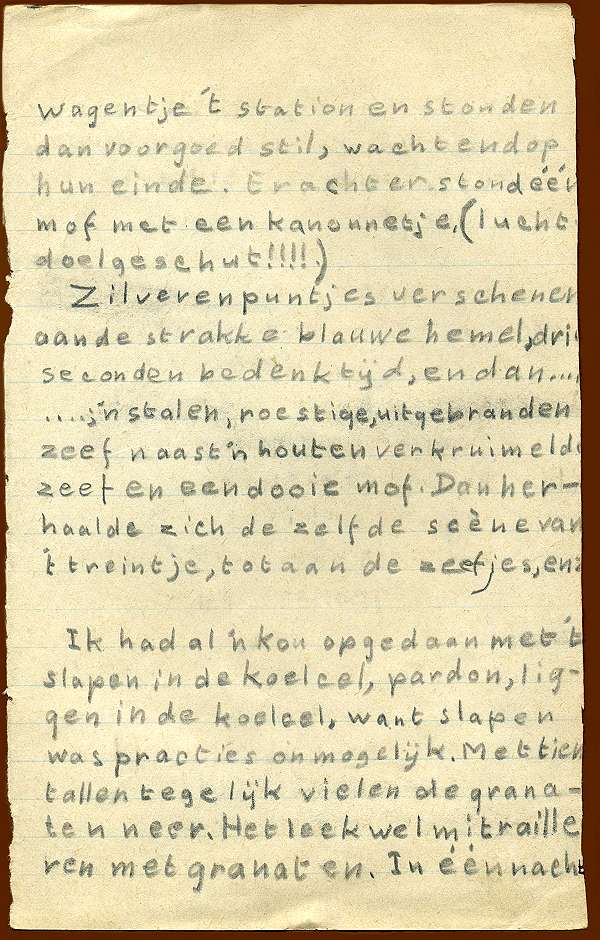 wagentje 't station en stonden
dan voorgoed stil, wachtend op
hun einde. Erachter stond één
mof met een kanonnetje. (lucht-
doelgeschut!!!!)
Zilveren puntjes verschenen
aan de strakke blauwe hemel, drie
seconden bedenktijd, en dan....,
....,'n stalen, roestige, uitgebranden
zeef naast 'n houten verkruimelde
zeef en een dooie mof. Dan her-
haalde zich de zelfde scène van
't treintje, tot aan de zeefjes, enz
Ik had al 'n kou opgedaan met 't
slapen in de koelcel, pardon, lig-
gen in de koelcel, want slapen
was practies onmogelijk. Met tien
tallen tegelijk vielen de grana-
ten neer. Het leek wel mitraille
ren met granaten. In één nacht